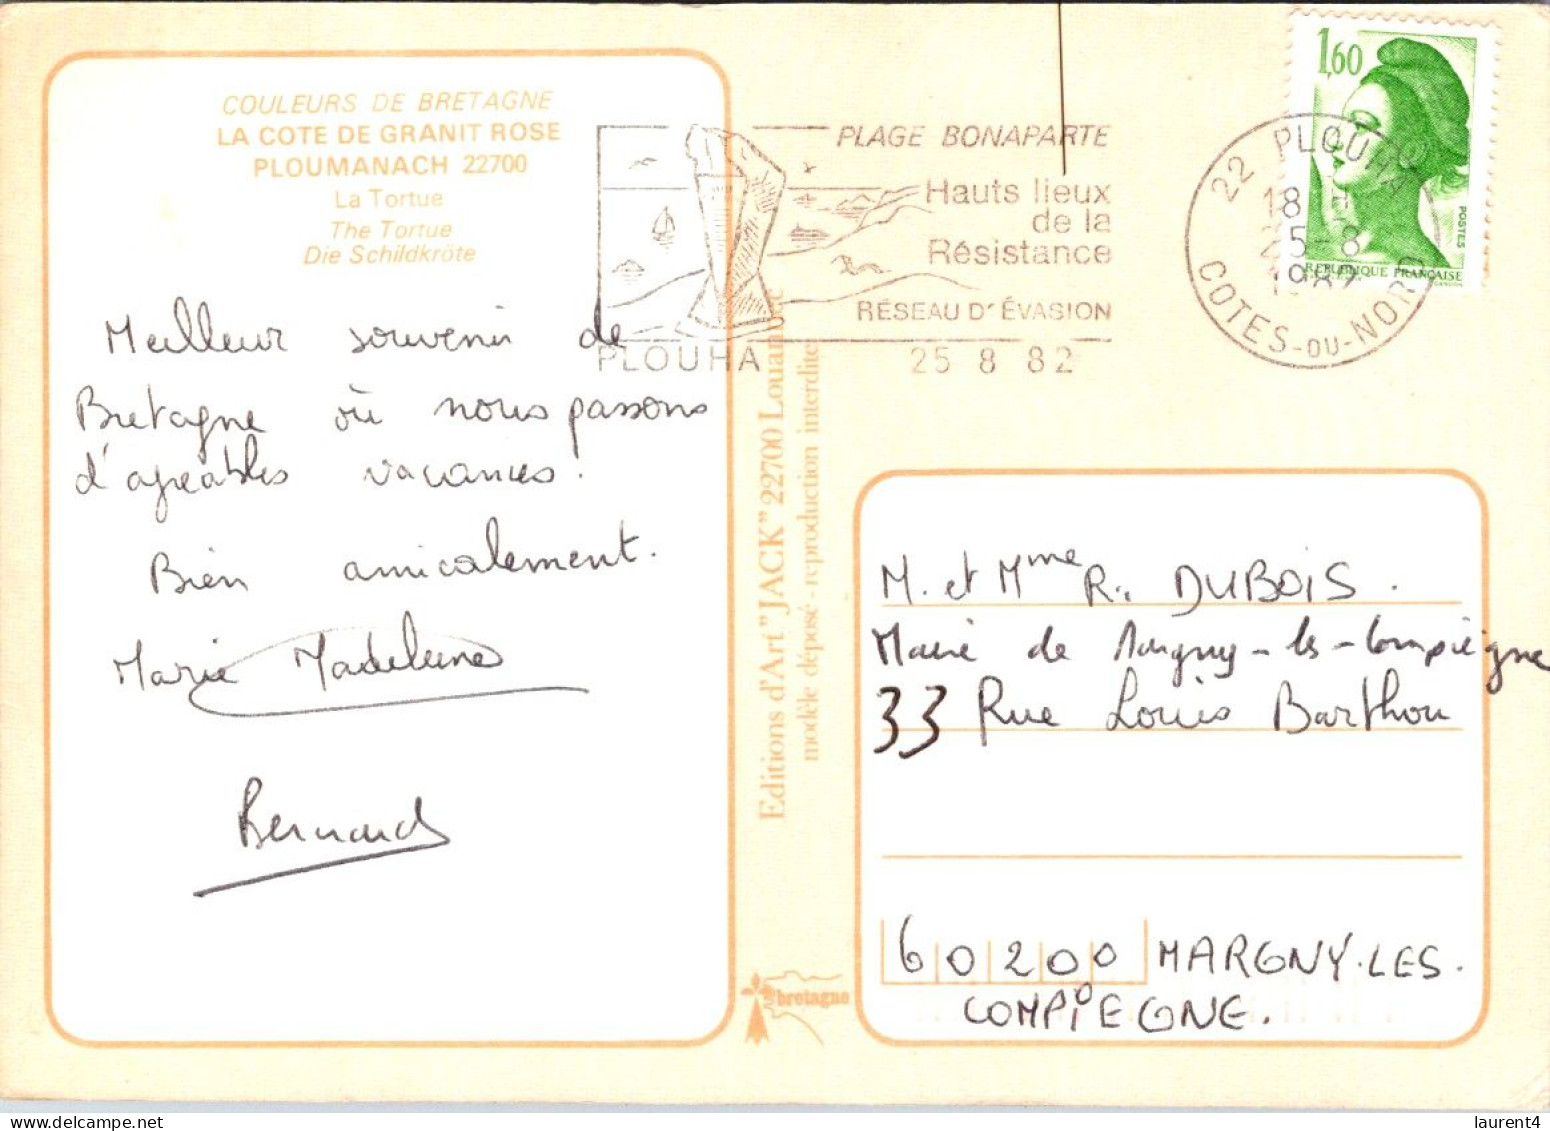 COULEURS DE BRETAGNE
LA COTE DE GRANIT ROSE
PLOUMANACH 22700
La Tortue
The Tortue
Die Schildkröte
Meilleur souvenir de
Bretagne où nous passons
d'agréables vacances!
Bien amicalement.
Marie Madeleine
Bernard
PLAGE BONAPARTE
Hauts lieux
de la
Résistance
RÉSEAU D'ÉVASION
PLOUHA
25 8 82
22 PLOUHA
18 H
25-8
1982
COTES-DU-NORD
1,60
POSTES
REPUBLIQUE FRANÇAISE
GANDON
Editions d'Art "JACK" 22700 Louannec
modèle déposé - reproduction interdite
bretagne
M. et Mme R. DUBOIS.
Mairie de Margny-les-Compiègne
33 Rue Louis Barthou
60200 MARGNY.LES.
COMPIEGNE.
laurent4